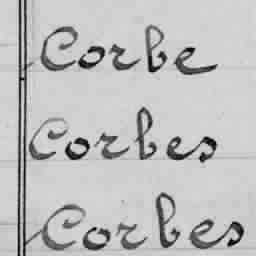 Corbe
Corbes
Corbes